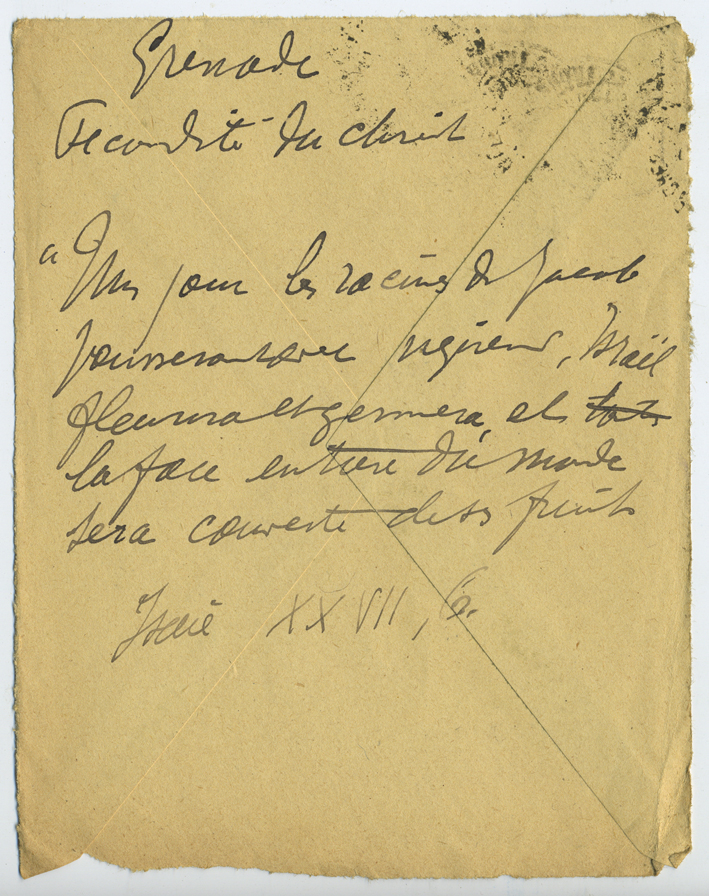 Grenade
Fecondité du christ
"Un jour les racines de Jacob
pousseront avec vigueur, Israël
fleurira et germera, et
la face entière du monde
sera couverte de ses fruits
Isaïe XXVII, 6.